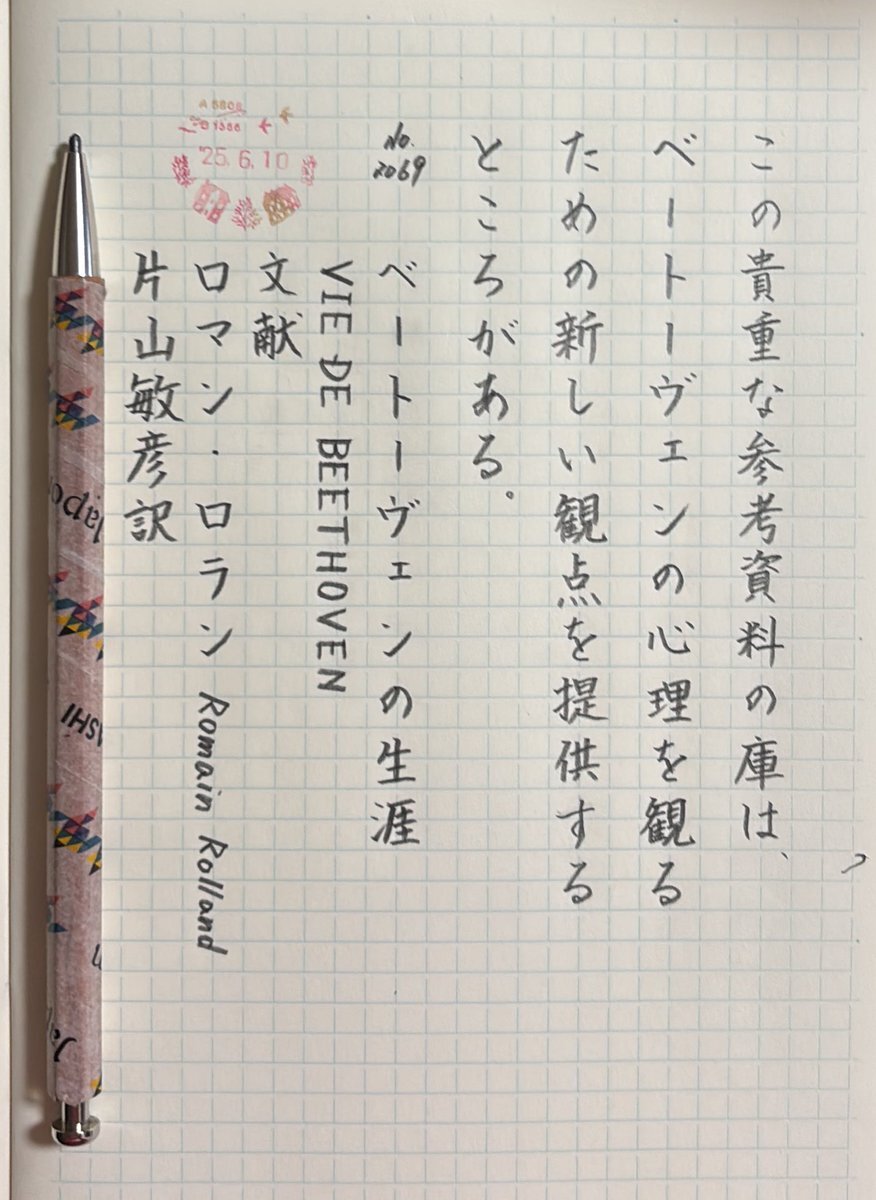 この貴重な参考資料の庫は、
ベートーヴェンの心理を観る
ための新しい観点を提供する
ところがある。
No.
2069
ベートーヴェンの生涯
VIE DE BEETHOVEN
文献
ロマン・ロラン Romain Rolland
片山敏彦訳
'25.6.10